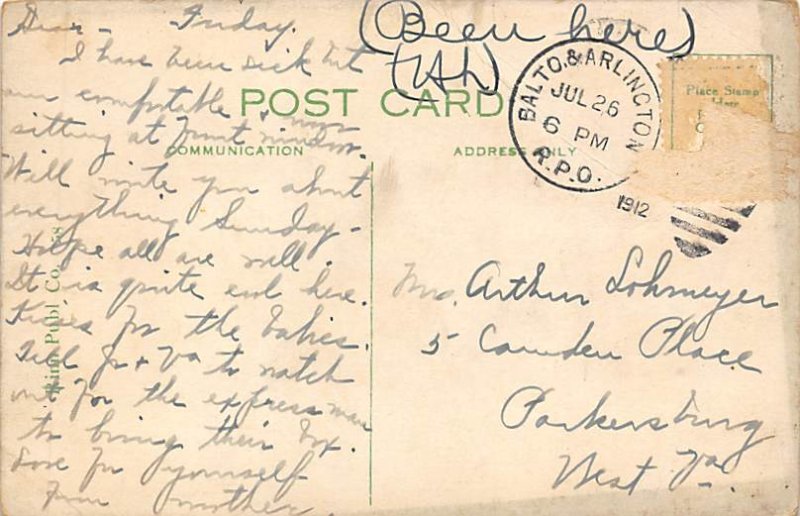 Dear - Friday.
I have been sick but
am comfortable & now
sitting at front window.
Will write you about
everything Sunday -
Hope all are well.
It is quite cool here.
Kisses for the babies.
Tell Jr + Va to watch
out for the express man
to bring their box.
Love for yourself
From mother
(Been here)
POST CARD
COMMUNICATION
ADDRESS ONLY
BALTO. & ARLINGTON
JUL 26
6 PM
R.P.O.
1912
Place Stamp
Here
Publ. Co.
Mrs. Arthur Lohmeyer
5 Camden Place
Parkersburg
West Va.